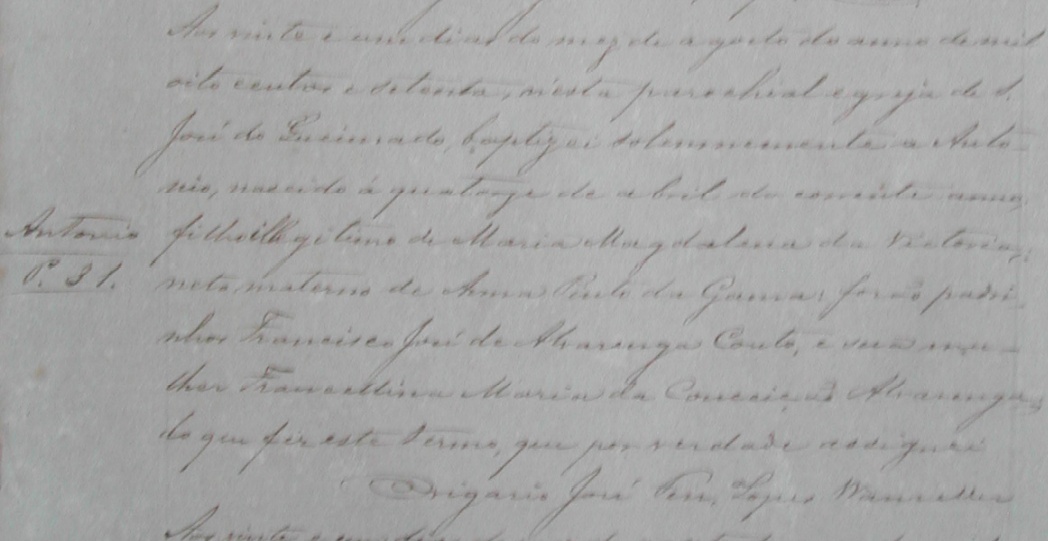 Aos vinte e um dias do mez de agosto do anno de mil
oito centos e setenta, nesta parochial egreja de S.
José do Queimado, baptizei solemnemente a Anto-
nio, nascido á quatorze de abril do corrente anno,
Antonio
filho illegitimo de Maria Magdalena da Victoria,
P. 31.
neto materno de Anna Pinto da Gama: forão padri-
nhos Francisco José de Alvarenga Couto, e sua mu-
lher Francellina Maria da Conceição Alvarenga;
do que fiz este termo, que por verdade assignei
O vigario José Lopes
Aos vinte e um dias do